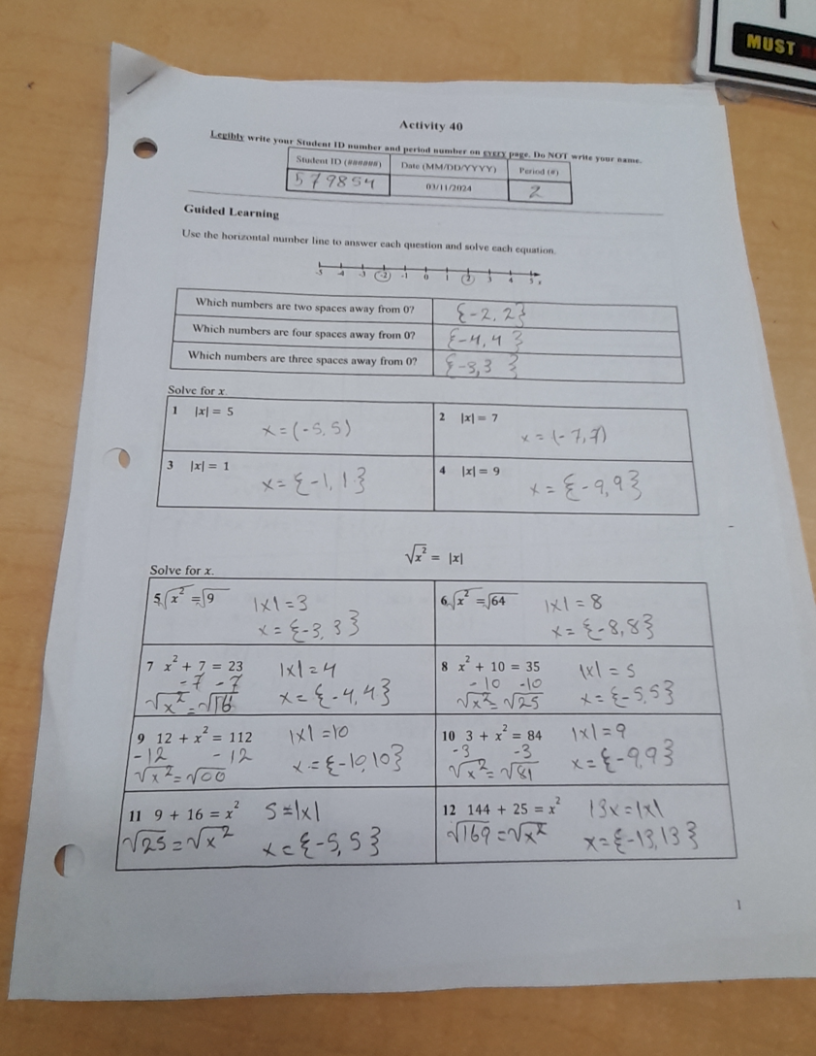 MUST
Activity 40
Legibly write your Student ID number and period number on every page. Do NOT write your name.
Student ID (######) Date (MM/DD/YYYY) Period (#)
579854 03/11/2024 2
Guided Learning
Use the horizontal number line to answer each question and solve each equation.
-5 -4 -3 -2 -1 0 1 2 3 4 5 x
Which numbers are two spaces away from 0? {-2, 2}
Which numbers are four spaces away from 0? {-4, 4}
Which numbers are three spaces away from 0? {-3, 3}
Solve for x.
1 |x| = 5 x = (-5, 5)
2 |x| = 7 x = (-7, 7)
3 |x| = 1 x = {-1, 1}
4 |x| = 9 x = {-9, 9}
√x² = |x|
Solve for x.
5 √x² = √9 |x| = 3
x = {-3, 3}
6 √x² = √64 |x| = 8
x = {-8, 8}
7 x² + 7 = 23 |x| = 4
-7 -7
√x² = √16 x = {-4, 4}
8 x² + 10 = 35 |x| = 5
-10 -10
√x² = √25 x = {-5, 5}
9 12 + x² = 112 |x| = 10
-12 -12
√x² = √00 x = {-10, 10}
10 3 + x² = 84 |x| = 9
-3 -3
√x² = √81 x = {-9, 9}
11 9 + 16 = x² 5 = |x|
√25 = √x² x = {-5, 5}
12 144 + 25 = x² 13x = |x|
√169 = √x² x = {-13, 13}
1